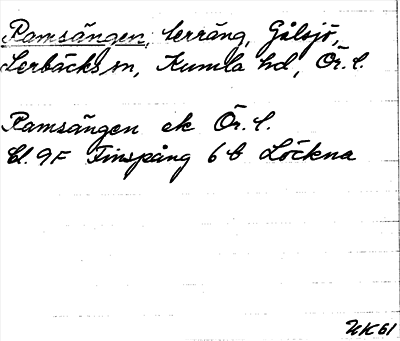 Ramsängen, terräng, Gålsjö,
Lerbäcks sn, Kumla hd, Ör. l.
Ramsängen ek Ör. l.
Bl. 9F Finspång 6 b Löckna
UK 61